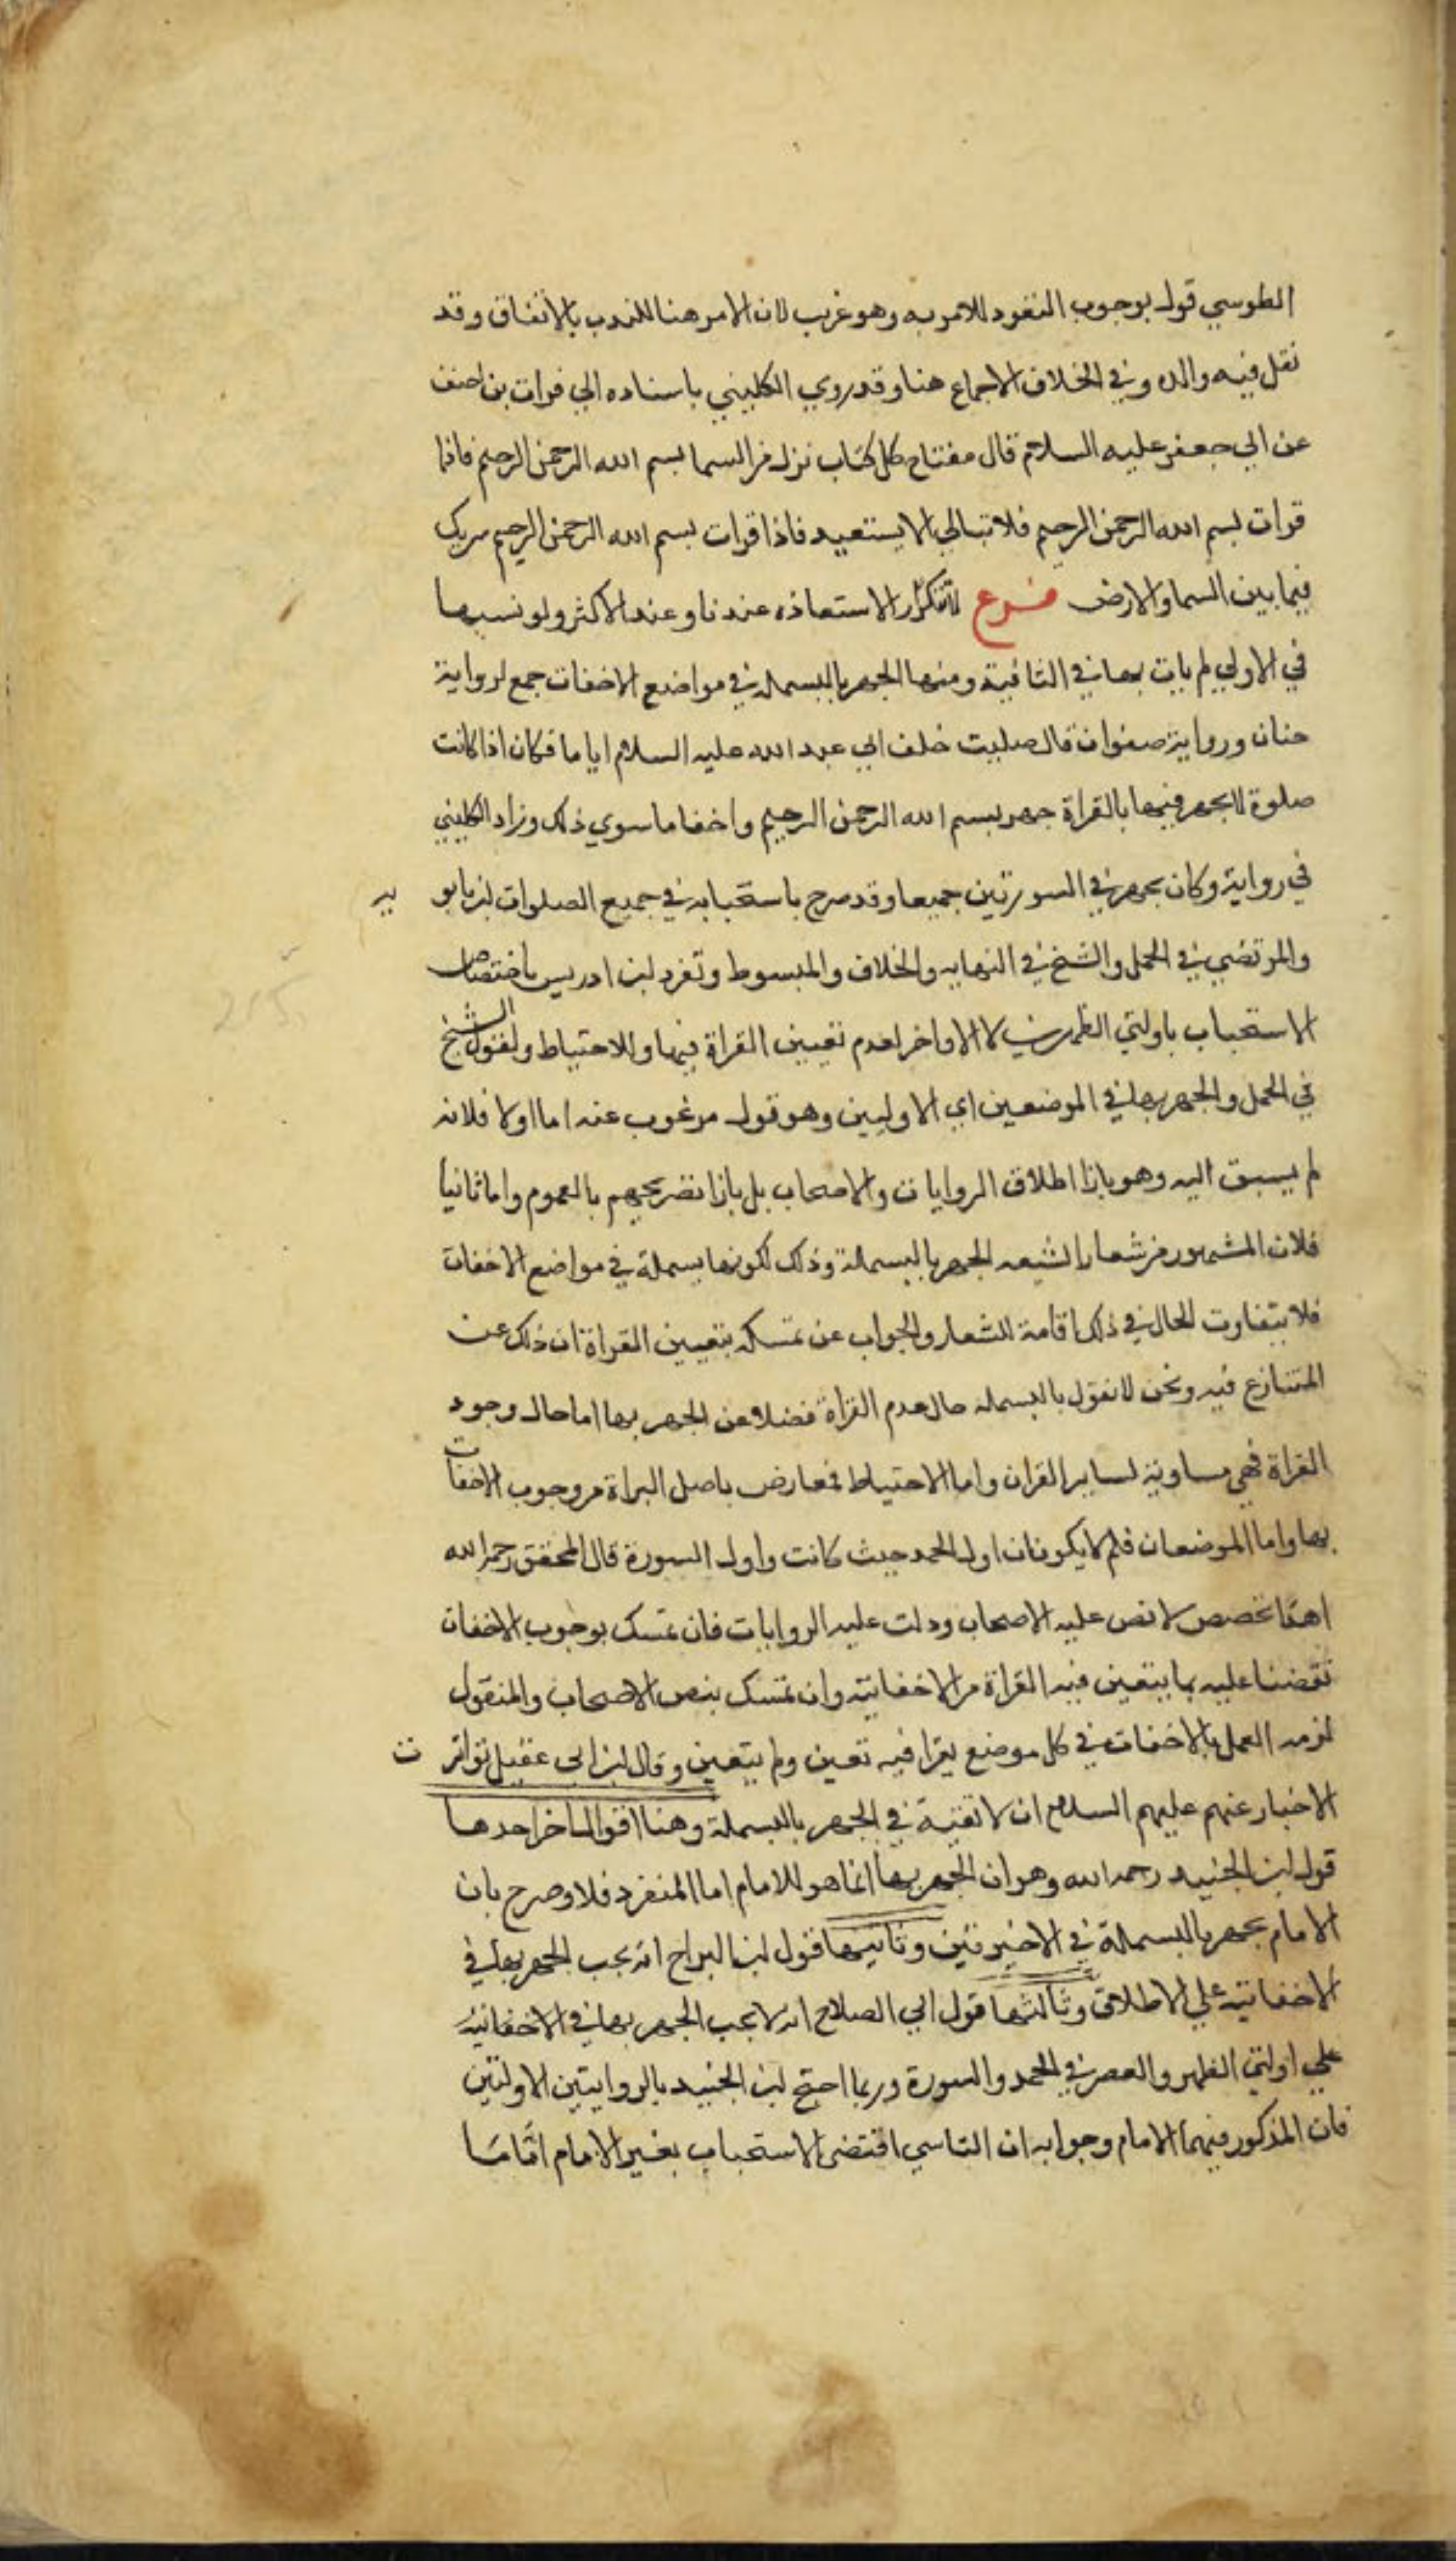 الطوسي قول بوجوب التعوذ للامر به وهو غريب لان الامر هنا للندب بالاتفاق وقد
نقل فيه والده في الخلاف الاجماع هنا وقد روي الكليني باسناده الي فرات بن احنف
عن ابي جعفر عليه السلام قال مفتاح كل كتاب نزل من السما بسم الله الرحمن الرحيم فاذا
قرات بسم الله الرحمن الرحيم فلا تبالي الا يستعيد فاذا قرات بسم الله الرحمن الرحيم سترتك
فيما بين السما والارض فرع لا تتكرر الاستعاذه عندنا وعند الاكثر ولو نسيها
في الاولي لم يات بها في الثانية ومنها الجهر بالبسملة في مواضع الاخفات جمع لرواية
حنان ورواية صفوان قال صليت خلف ابي عبد الله عليه السلام اياما فكان اذا كانت
صلوة لا يجهر فيها بالقراة جهر ببسم الله الرحمن الرحيم واخفا ما سوي ذلك وزاد الكليني
في رواية وكان يجهر في السورتين جميعا وقد صرح باستحبابه في جميع الصلوات ابن بابو يه
والمرتضي في الجمل والشيخ في النهايه والخلاف والمبسوط وتفرد ابن ادريس باختصاص
الاستحباب باولتي الظهرين لا الاواخر لعدم تعيين القراة فيها وللاحتياط ولقول الشيخ
في الجمل والجهر بها في الموضعين اي الاوليين وهو قول مرغوب عنه اما اولا فلانه
لم يسبق اليه وهو بازا اطلاق الروايات والاصحاب بل بازا تصريحهم بالعموم واما ثانيا
فلان المشهور من شعار الشيعه الجهر بالبسملة وذلك لكونها بسملة في مواضع الاخفات
فلا يتفاوت الحال في ذلك اقامة للشعار والجواب عن تمسكه بتعيين القراة ان ذلك عن
المتنازع فيه ونحن لا نقول بالبسملة حال عدم القراة فضلا عن الجهر بها اما حال وجود
القراة فهي مساوية لساير القران واما الاحتياط فمعارض باصل البراة من وجوب الاخفات
بها واما الموضعان فلم لا يكونان اول الحمد حيث كانت واول السورة قال المحقق رحمه الله
هذا تخصص لا نص عليه الاصحاب ودلت عليه الروايات فان تمسك بوجوب الاخفات
نقضنا عليه بما يتعين فيه القراة من الاخفاتية وان تمسك بنص الاصحاب والمنقول
لزمه العمل بالاخفات في كل موضع يقرا فيه تعين ولم يتعين وقال ابن ابي عقيل تواتر ت
الاخبار عنهم عليهم السلام ان لا تقية في الجهر بالبسملة وهنا اقوال اخر احدها
قول ابن الجنيد رحمه الله وهو ان الجهر بها انما هو للامام اما المنفرد فلا وصرح بان
الامام يجهر بالبسملة في الاخيرتين وثانيها قول ابن البراج انه يجب الجهر بها في
الاخفاتية علي الاطلاق وثالثها قول ابي الصلاح انه لا يجب الجهر بها في الاخفاتية
علي اولتي الظهر والعصر في الحمد والسورة وربما احتج ابن الجنيد بالروايتين الاولتين
فان المذكور فيهما الامام وجوابه ان التاسي اقتضي الاستحباب بغير الامام اتماما